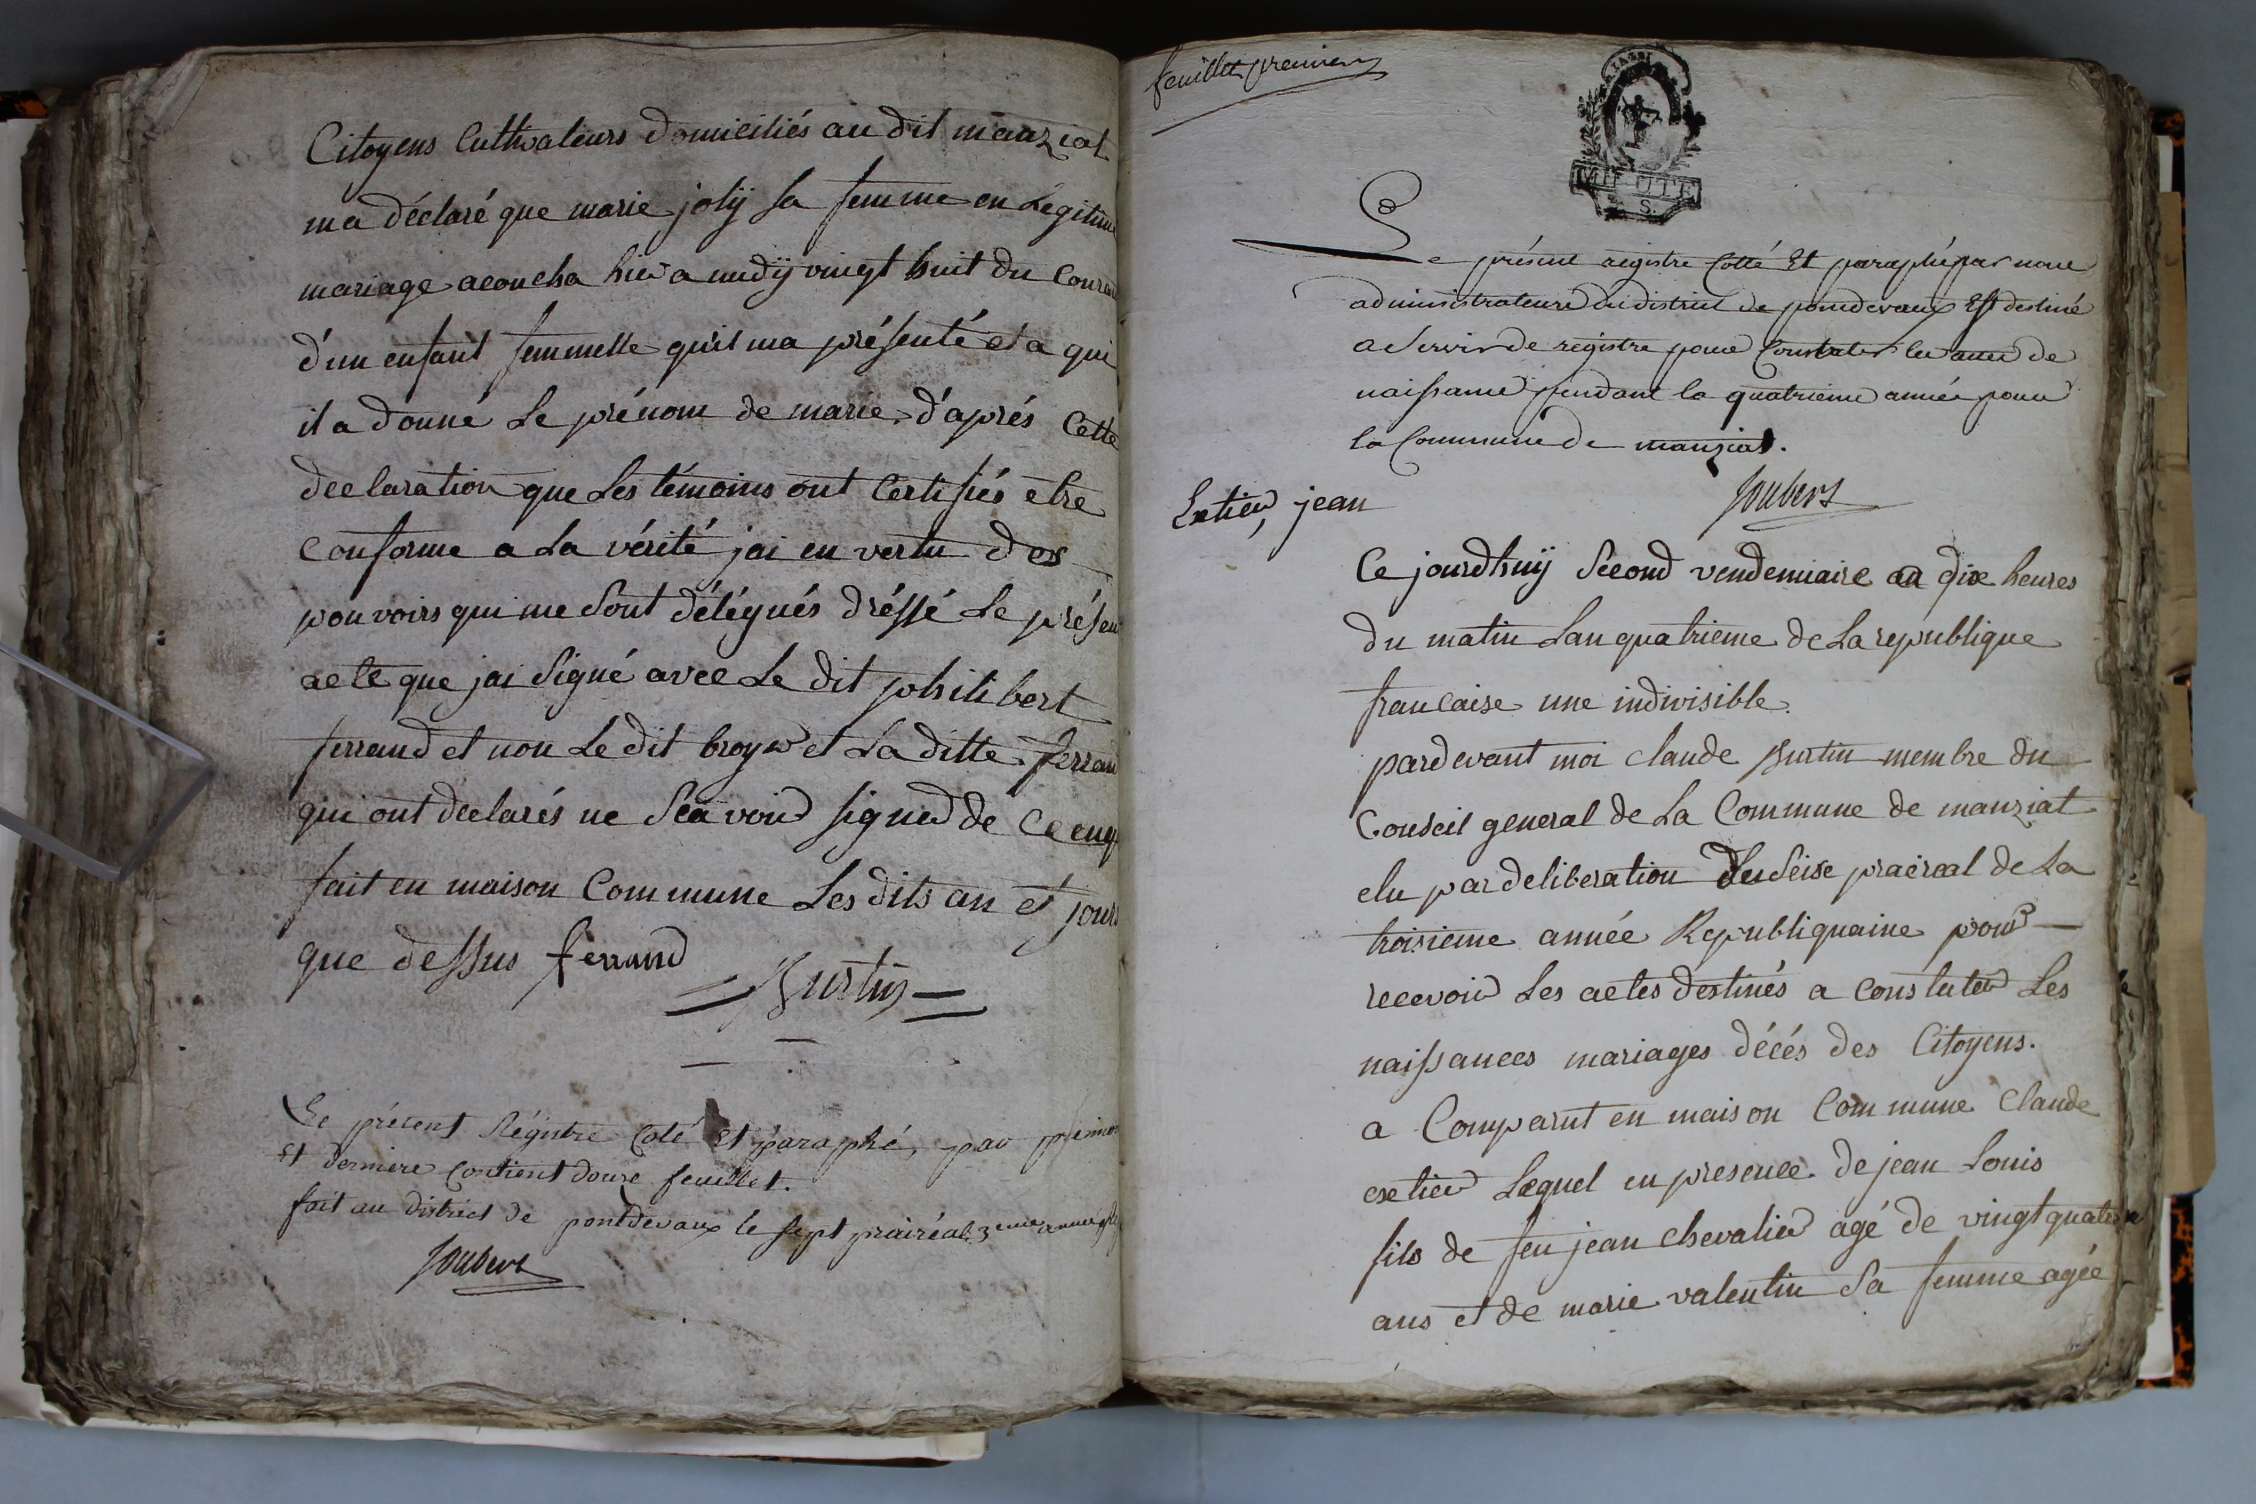 Citoyens Cultivateurs domiciliés au dit manziat
ma déclaré que marie jolÿ sa femme en Légitime
mariage acoucha hier a midÿ vingt huit du
d'un enfant femmelle qu'il ma présenté et a qui
il a donné Le prénom de marie. d'aprés Cette
declaration que Les témoins ont Certifiés etre
conforme a La vérité jai en vertu des
pouvoirs qui me Sont délégués dréssé Le
acte que jai Signé avec Le dit philibert
ferrand et non Le dit broyer et La ditte
qui ont declarés ne Scavoir signer de ce
fait en maison Commune Les dits an et jour
que dessus ferrand
Burtin
Le présent Régistre Coté Et paraphé, par
Et derniere Contient douze feuillet.
fait au district de pontdevaux le sept prairéal 3eme année
Joubert
feuillet premier
MINUTE
S.
Le présent registre Cotté Et paraphé par nous
administrateurs du district de pontdevaux Est destiné
a Servir de registre pour Constater les actes de
naissance pendant la quatrieme année pour
la Commune de manziat.
Joubert
Extier, jean
Ce jourdhuÿ Second vendemiaire a dix heures
du matin Lan quatrieme de La republique
francaise une indivisible.
pardevant moi claude Burtin membre du
Conseil general de La Commune de manziat
elu par deliberation du Seise praireal de La
troisieme année Republiquaine pour
recevoir Les actes destinés a constater Les
naissances mariages décés des Citoyens.
a Comparut en maison Commune Claude
extier Lequel en presence de jean Louis
fils de feu jean chevalier agé de vingt quatre
ans et de marie valentin Sa femme agée